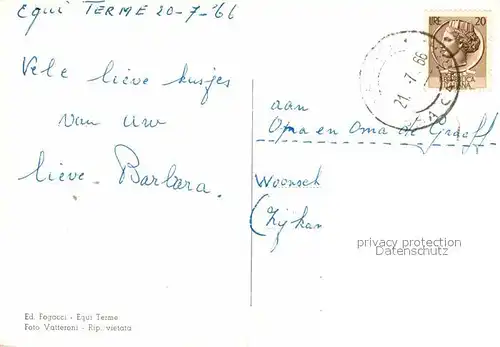 Equi TERME 20-7-'66
Vele lieve kusjes
van uw
lieve Barbara.
LIRE 20
21.7.66
aan
Opa en Oma de Graaff
Woensch
(Zijkan
privacy protection
www.ansichtskarten-center.de
Ed. Fogacci - Equi Terme
Foto Vatteroni - Rip. vietata